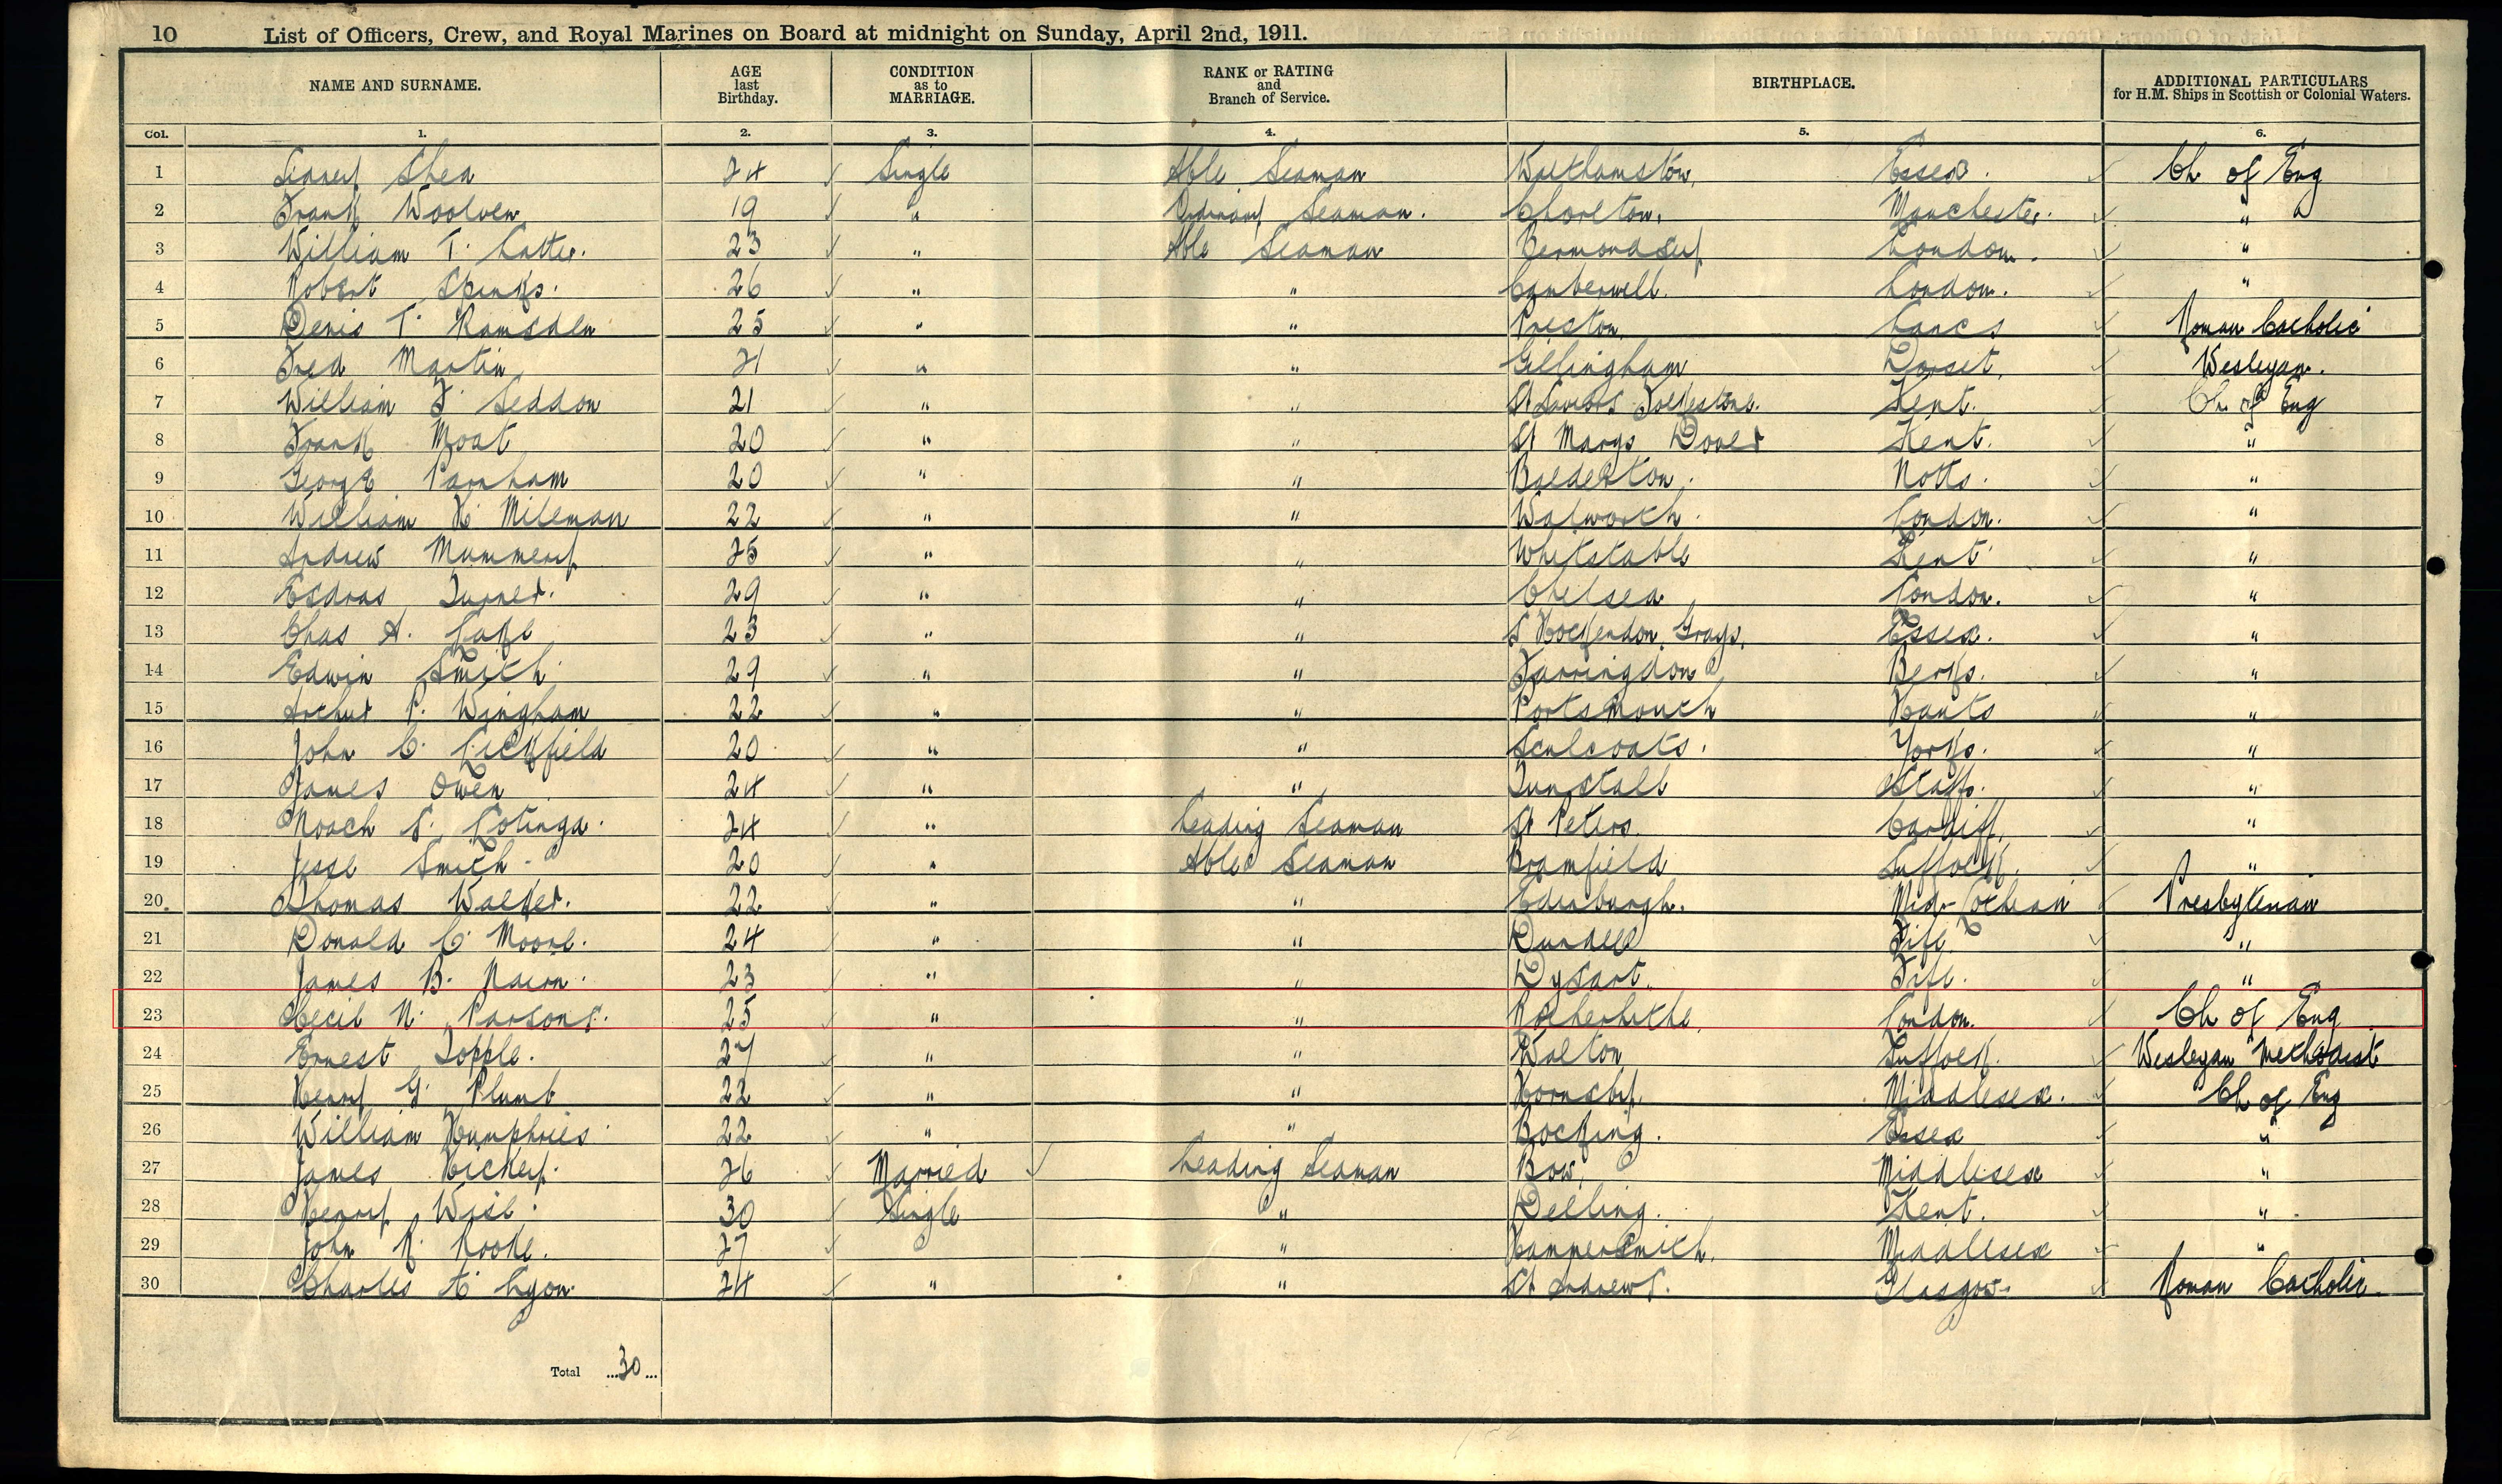 10 List of Officers, Crew, and Royal Marines on Board at midnight on Sunday, April 2nd, 1911.
NAME AND SURNAME. AGE last Birthday. CONDITION as to MARRIAGE. RANK or RATING and Branch of Service. BIRTHPLACE. ADDITIONAL PARTICULARS for H.M. Ships in Scottish or Colonial Waters.
Col. 1. 2. 3. 4. 5. 6.
1 Shea 24 Single Able Seaman Walthamstow, Essex. Ch of Eng
2 Frank Woolven 19 " Ordinary Seaman. Chorlton, Manchester. "
3 William T. Cutter. 23 " Able Seaman Bermondsey London. "
4 Robert Spinks. 26 " " Camberwell. London. "
5 Denis T. Ramsden 25 " " Preston Lancs Roman Catholic
6 Fred Martin 21 " " Gillingham Dorset, Wesleyan.
7 William F. Seddon 21 " " St Saviours Folkestone. Kent. Ch of Eng
8 Frank Moat 20 " " St Marys Dover Kent. "
9 George Parnham 20 " " Balderton. Notts. "
10 William H. Mileman 22 " " Walworth. London. "
11 Andrew Mummery 25 " " Whitstable Kent "
12 Esdras Turner. 29 " " Chelsea London. "
13 Chas A. Lake 23 " " S Hockendon Grays, Essex. "
14 Edwin Smith 29 " " Farringdon Berks. "
15 Arthur P. Wingham 22 " " Portsmouth Hants "
16 John C. Lickfield 20 " " Sculcoats. Yorks. "
17 James Owen 24 " " Tunstall Staffs. "
18 Noach S. Lotinga. 24 " Leading Seaman St Peters Cardiff, "
19 Jesse Smith 20 " Able Seaman Bramfield Suffolk. "
20. Thomas Walker. 22 " " Edinburgh. Mid-Lothian Presbyterian
21 Donald C. Moore. 24 " " Dundee Fife "
22 James B. Nairn. 23 " " Dysart, Fife. "
23 Cecil N. Parsons. 25 " " Rotherhithe, London. Ch of Eng
24 Ernest Topple. 27 " " Walton Suffolk. Wesleyan Methodist
25 Henry G. Plumb 22 " " Hornsey, Middlesex. Ch of Eng
26 William Humphries 22 " " Bocking. Essex "
27 James Hickey. 26 Married Leading Seaman Bow, Middlesex "
28 Henry Wise. 30 Single " Detling. Kent. "
29 John R. Rooke. 27 " Hammersmith. Middlesex "
30 Charles E. Lyon. 24 " " St Andrews. Glasgow. Roman Catholic.
Total ...30...